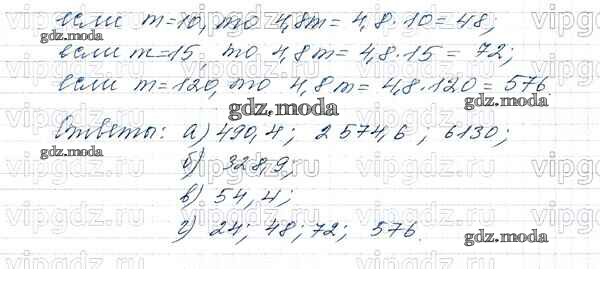 если m=10, то 4,8m = 4,8·10 = 48;
если m=15, то 4,8m = 4,8·15 = 72;
если m=120, то 4,8m = 4,8·120 = 576.
Ответы: а) 490,4; 2574,6; 6130;
б) 328,9;
в) 54,4;
г) 24; 48; 72; 576.
vipgdz.ru
gdz.moda